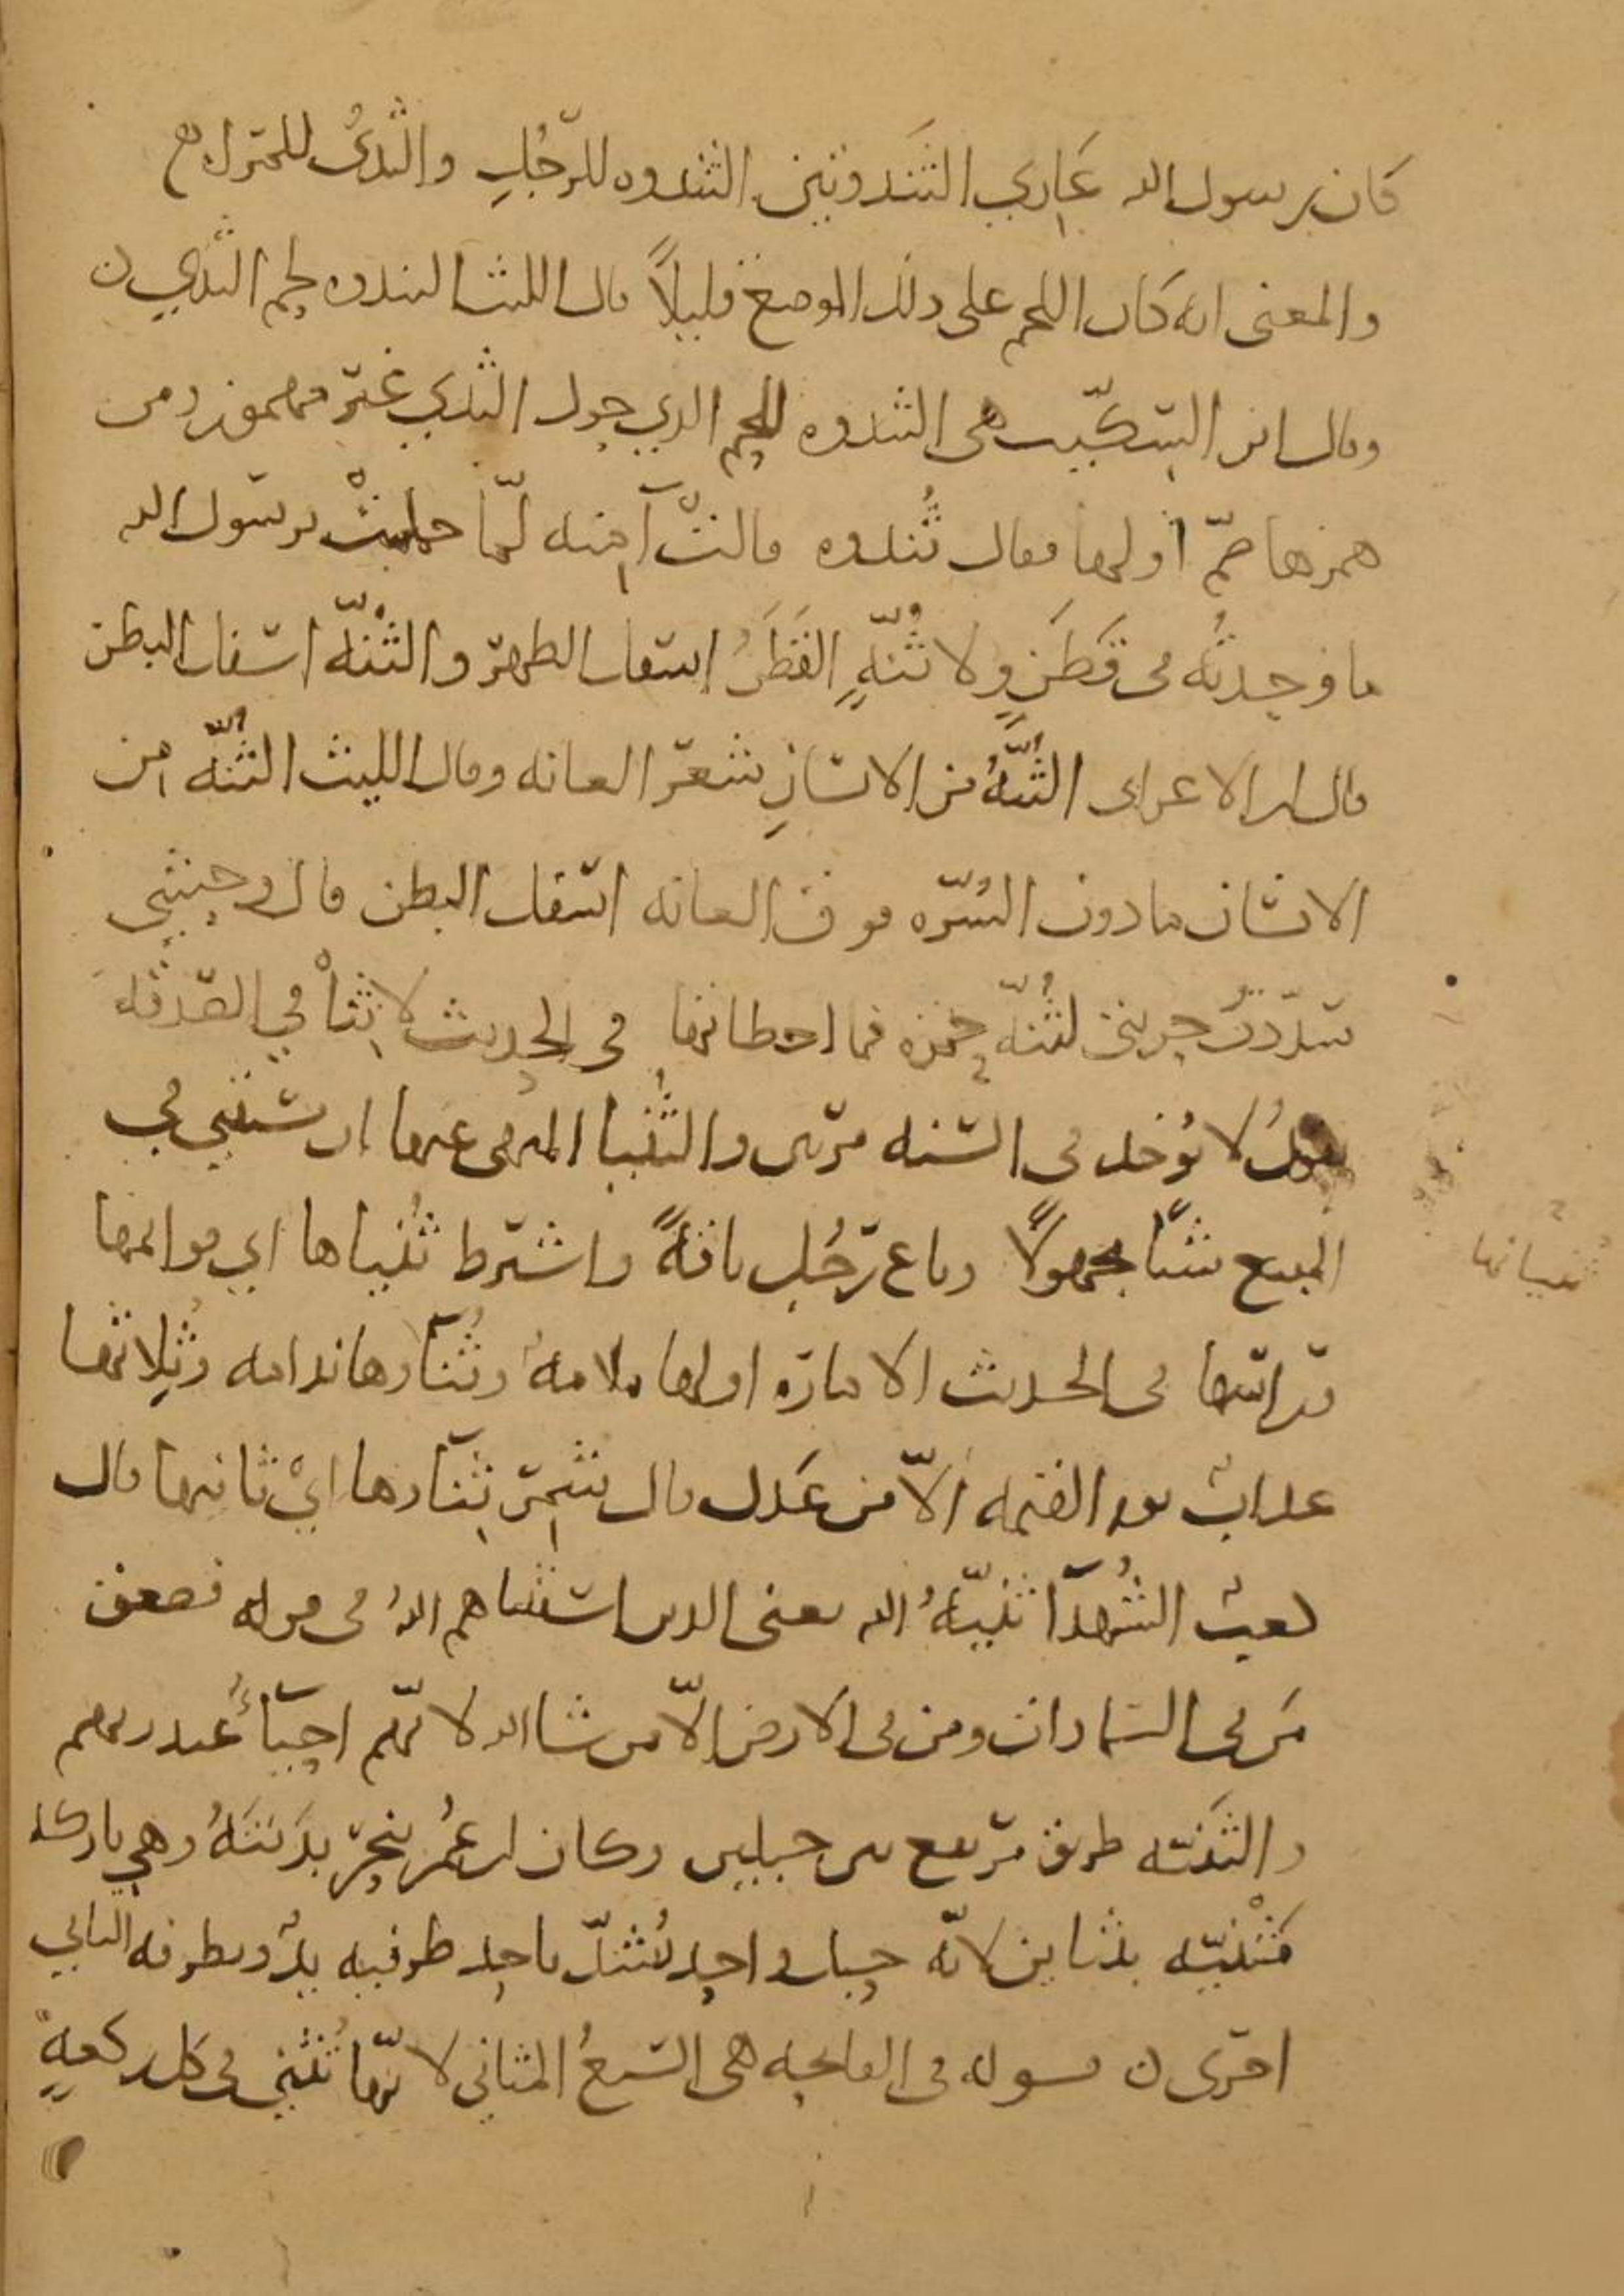 كان رسول الله عاري الثندوتين الثندوه للرجل والثدي للمراه
والمعنى انه كان اللحم على ذلك الموضع قليلاً قال الليث الثندوه لحم الثدي ن
وقال ابن السكّيت هي الثندوه اللحم الذي حول الثدي غير مهموز ومن
همزها ضمّ اولها فقال ثُندوه قالت آمنه لمّا حملتْ برسول الله
ما وجدتُه في قَطَنٍ ولا ثُنّهٍ القَطَنُ اسفل الظهر والثُنّه اسفل البطن
قال ابن الاعرابي الثُنّهُ من الانسانِ شعر العانه وقال الليث الثُنّه من
الانسان ما دون السُرّه فوق العانه اسفل البطن قال وحشي
سدّدتُ حربتي لثُنّه حمزه فما اخطاتها في الحديث لا ثنا في الصدقه
يقولُ لا تُوخذ في السنه مرتين والثُنيا المنهى عنها ان يستثني في
المبيع شيئا مجهولًا وباع رَجُل ناقةً واشترط ثُنياها اي قوائمها
ثنيانها
وراسها في الحديث الاماره اولها ملامهٌ وثُنآوها ندامه وثِلاثها
عذابٌ يوم القيمه الّا من عَدل قال شمر ثِنآوها ايْ ثانيها قال
كعبٌ الشُهدآ ثَنيّهُ الله يعنى الذين استثناهم اللهُ في قوله فصعق
مَن في السماوات ومن في الارض الّا من شا الله لانّهم احيآءٌ عند ربهم
والثَنيّه طريق مرتفع بين جبلين وكان ابن عُمر ينحر بدَنتَهُ وهي باركه
مَثْنيّه بثنايين لانّه حبل واحد تُشدّ باحد طرفيه يدٌ وبطرفه الثاني
اخرى ن قوله في الفاتحه هي السبعُ المثاني لانّها تُثنى في كل ركعهٍ